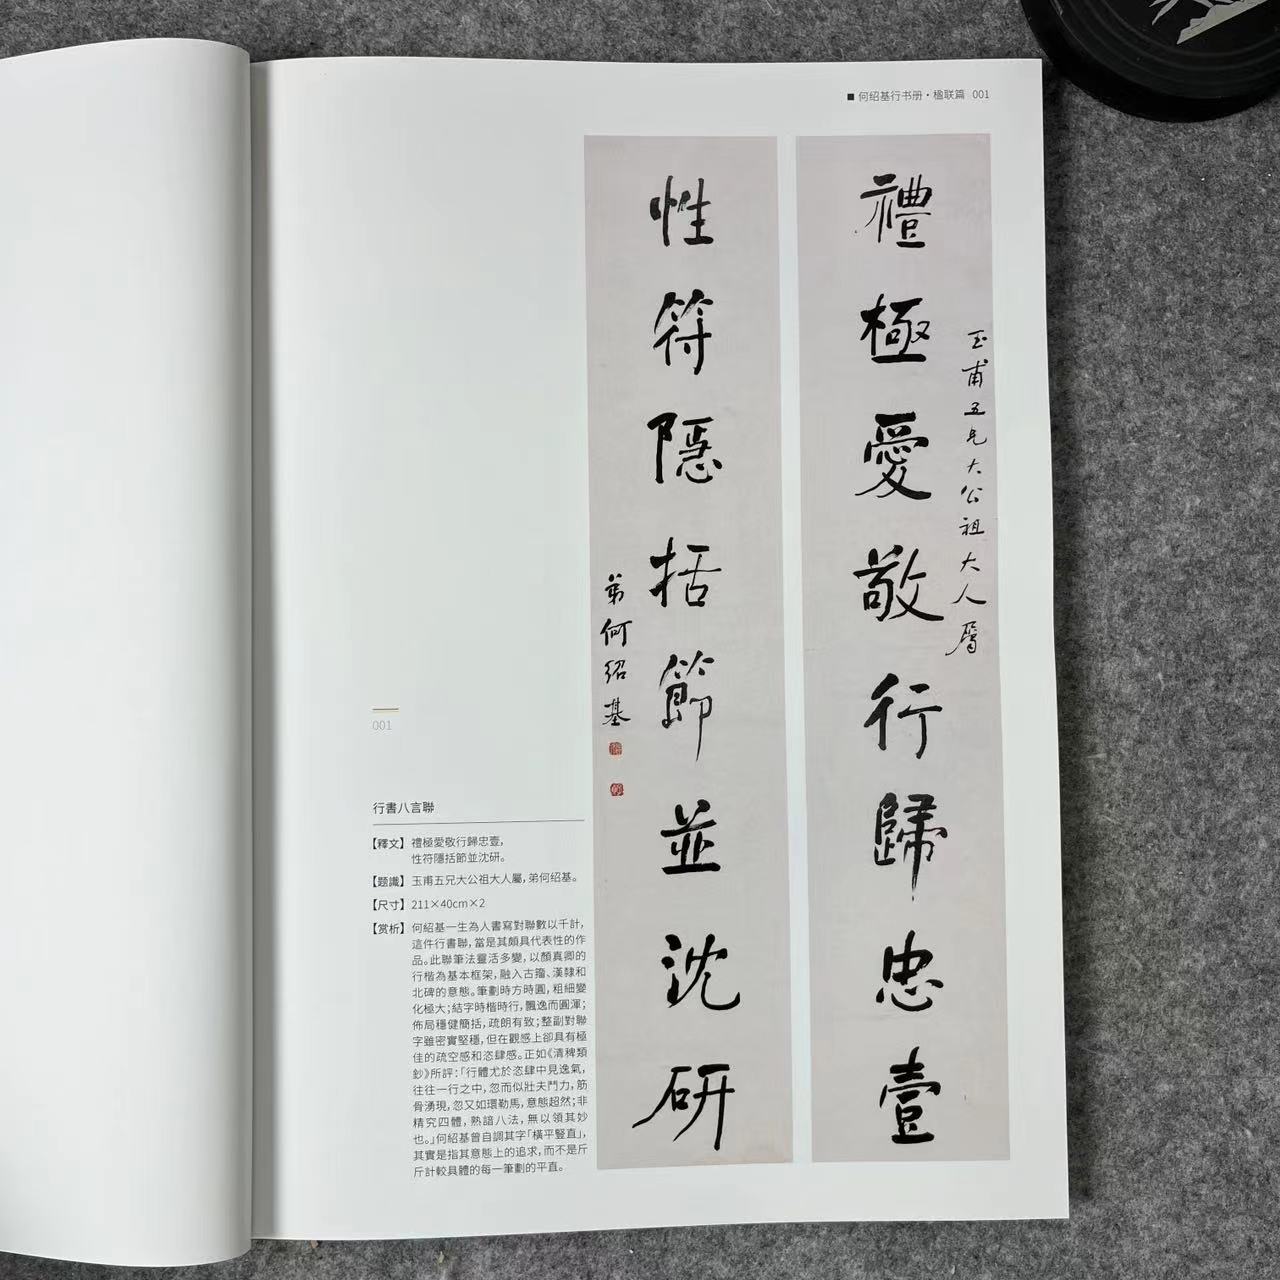 ■ 何绍基行书册·楹联篇 001
禮極愛敬行歸忠壹
玉甫五兄大公祖大人屬
性符隱括節並沈研
弟何紹基
001
行書八言聯
【釋文】禮極愛敬行歸忠壹，
性符隱括節並沈研。
【題識】玉甫五兄大公祖大人屬，弟何绍基。
【尺寸】211×40cm×2
【赏析】何紹基一生為人書寫對聯數以千計，
這件行書聯，當是其頗具代表性的作
品。此聯筆法靈活多變，以顏真卿的
行楷為基本框架，融入古籀、漢隸和
北碑的意態。筆劃時方時圓，粗細變
化極大；結字時楷時行，飄逸而圓渾；
佈局穩健簡括，疏朗有致；整副對聯
字雖密實堅穩，但在觀感上卻具有極
佳的疏空感和恣肆感。正如《清稗類
鈔》所評：「行體尤於恣肆中見逸氣，
往往一行之中，忽而似壯夫鬥力，筋
骨湧現，忽又如環勒馬，意態超然；非
精究四體，熟諳八法，無以領其妙
也。」何紹基曾自謂其字「橫平豎直」，
其實是指其意態上的追求，而不是斤
斤計較具體的每一筆劃的平直。